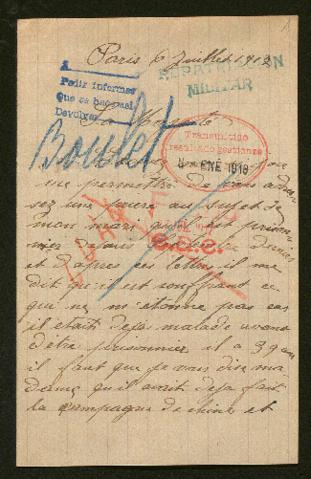 Paris 6 Juillet 191
REPATRIACION
MILITAR
A
Pedir informes
Que se hac
Devolver
Sa Majesté
Boulet
Transmitido
resultado gestiones
8 - ENE 1918
me permettre de vous
sez une au sujet de
mon mari qui est prison-
nier depuis
et d'apres ces lettres il me
dit qu'il est souffrant ce
qui ne m'étonne pas car
il était deja malade avant
d'etre prisonnier il a 39 an
il faut que je vous dise ma
dame qu'il avait deja fait
la campagne de chine et